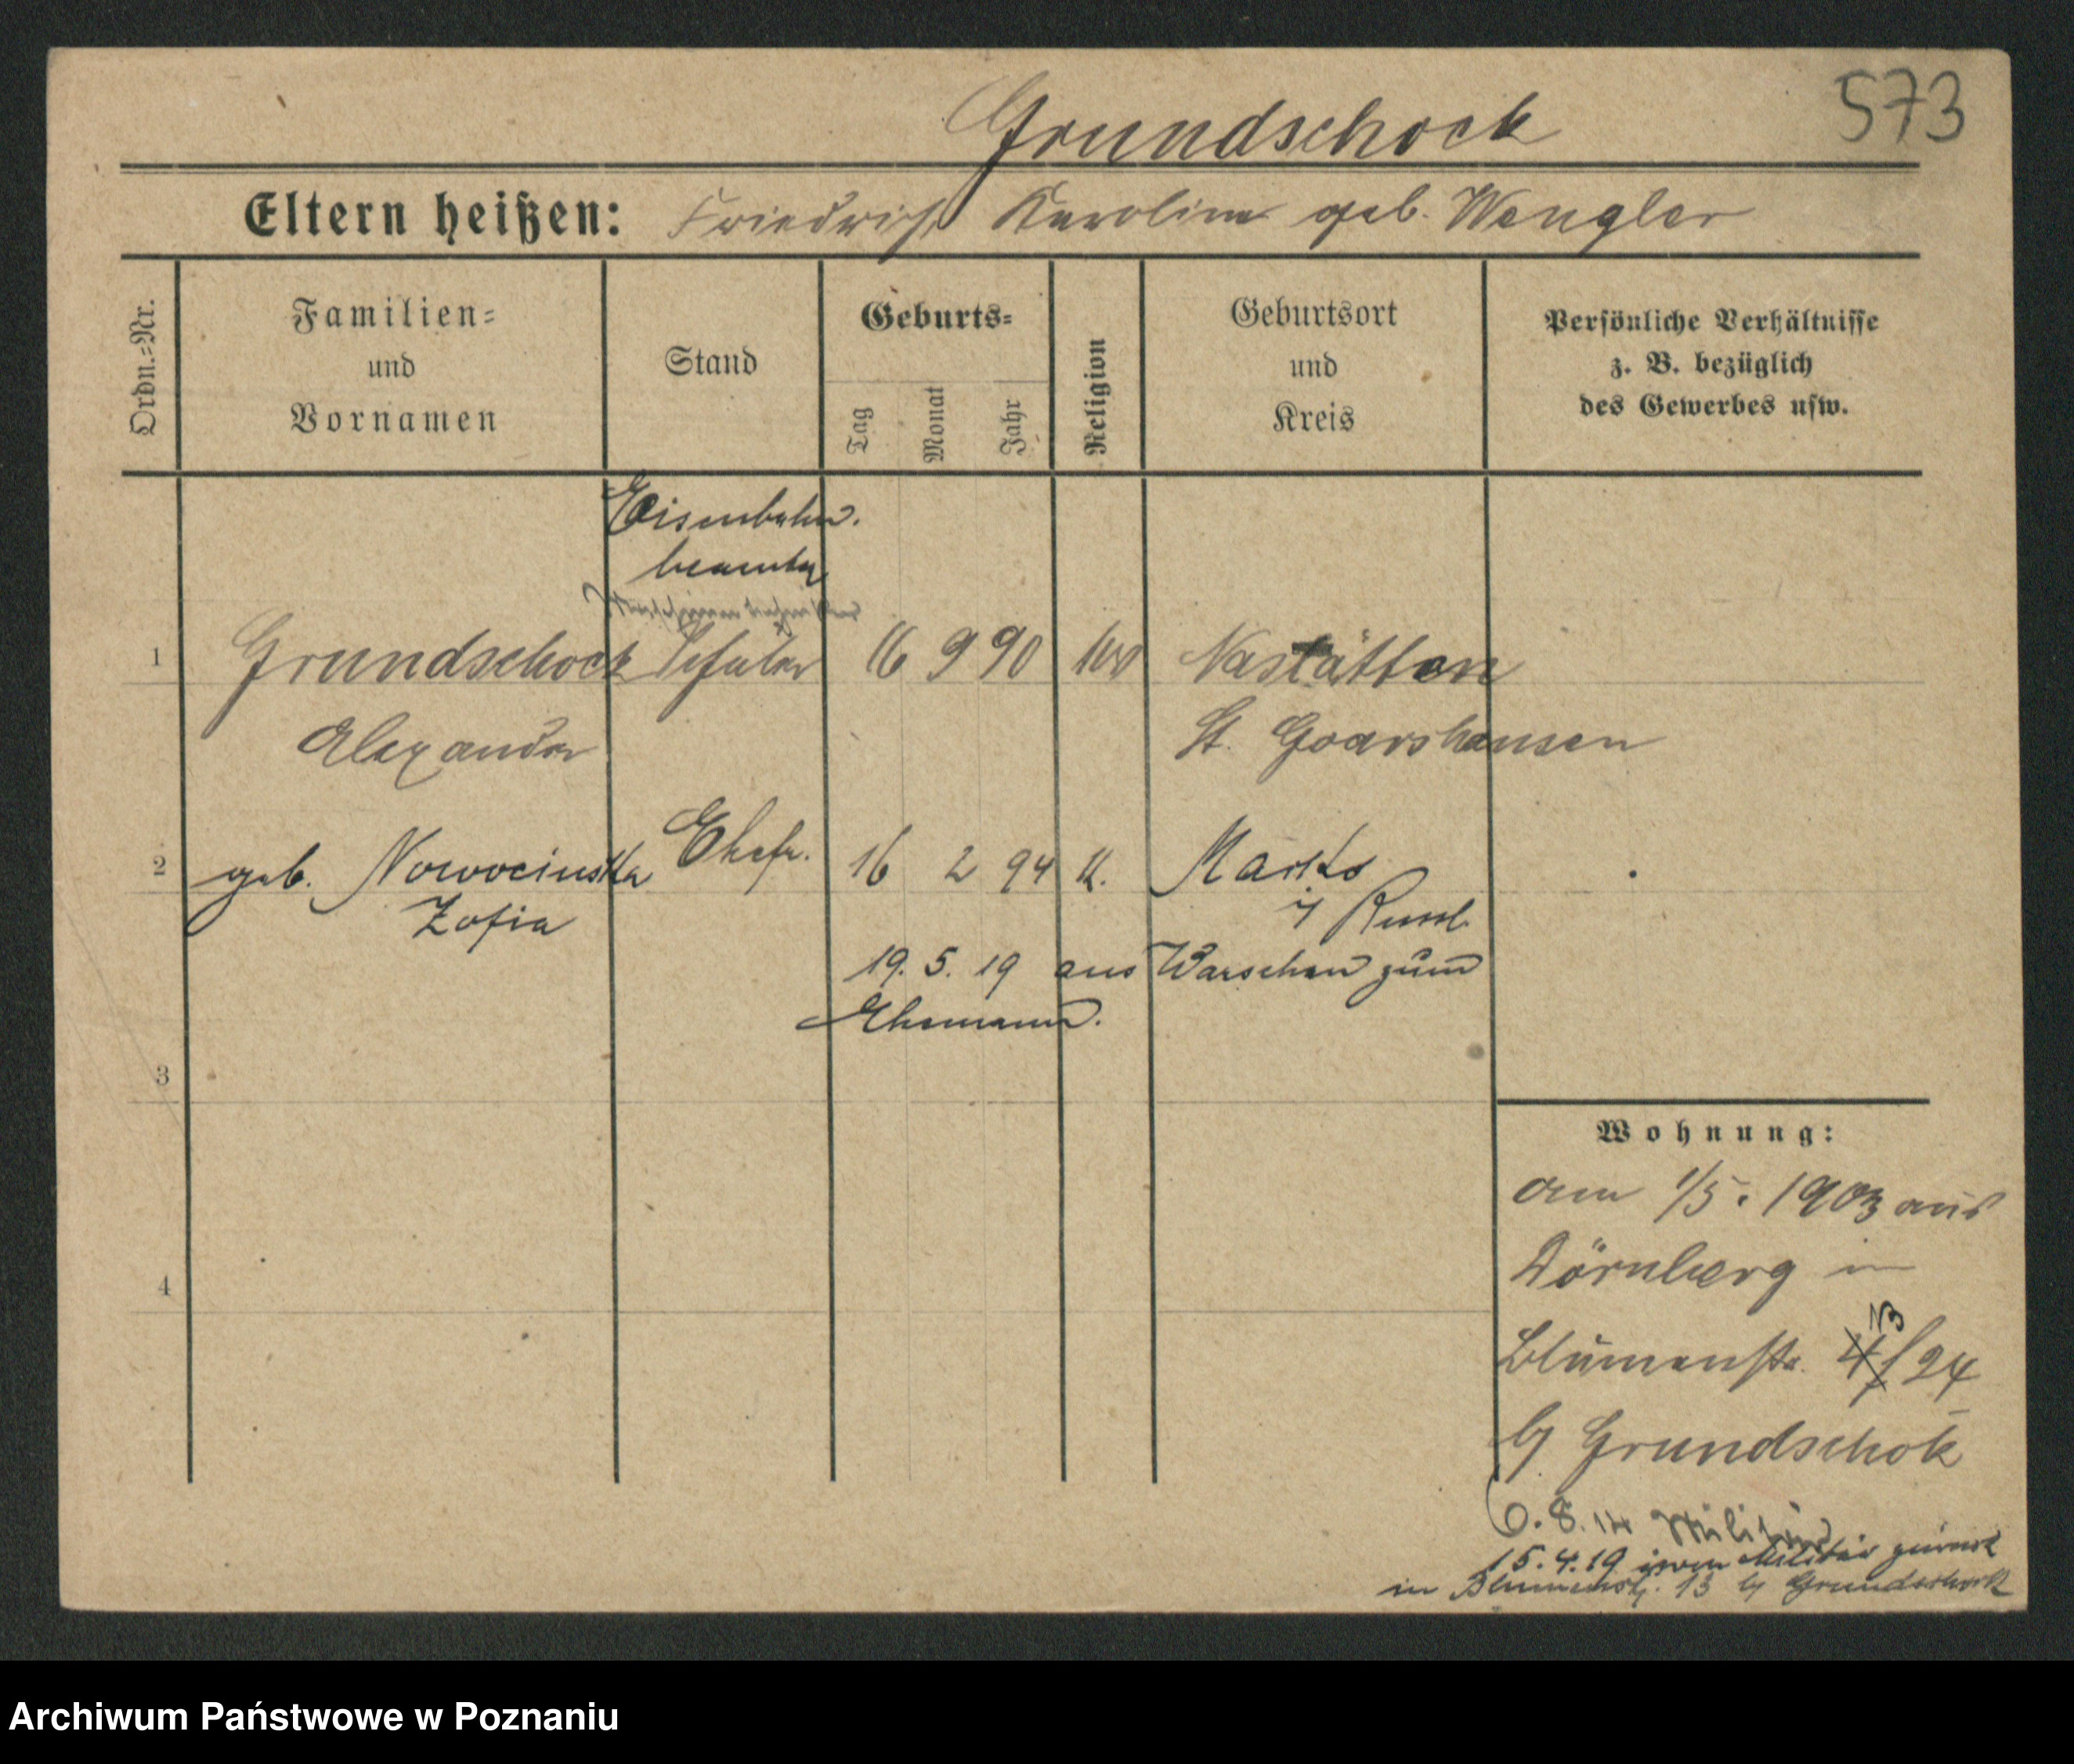 573
Grundschock
Eltern heißen: Friedrich Karolina geb. Wengler
Ordn.=Nr.
Familien=
und
Vornamen
Stand
Geburts=
Tag
Monat
Jahr
Religion
Geburtsort
und
Kreis
Persönliche Verhältnisse
z. B. bezüglich
des Gewerbes usw.
Eisenbahn.
beamter
1 Grundschock Schüler 16 9 90 Nastätten
Alexander St. Goarshausen
2 geb. Ehefr. 16 2 94 K.
Zofia Russl.
19. 5. 19 aus Warschau zum
Ehemann.
3
4
Wohnung:
am 1/5. 1903 aus
Dörnberg in
Blumenstr. 13
4/24
by Grundschok
6. 8. 14 Militär
15. 4. 19 vom Militär zurück
in Blumenstr. 13 by Grundschock
Archiwum Państwowe w Poznaniu